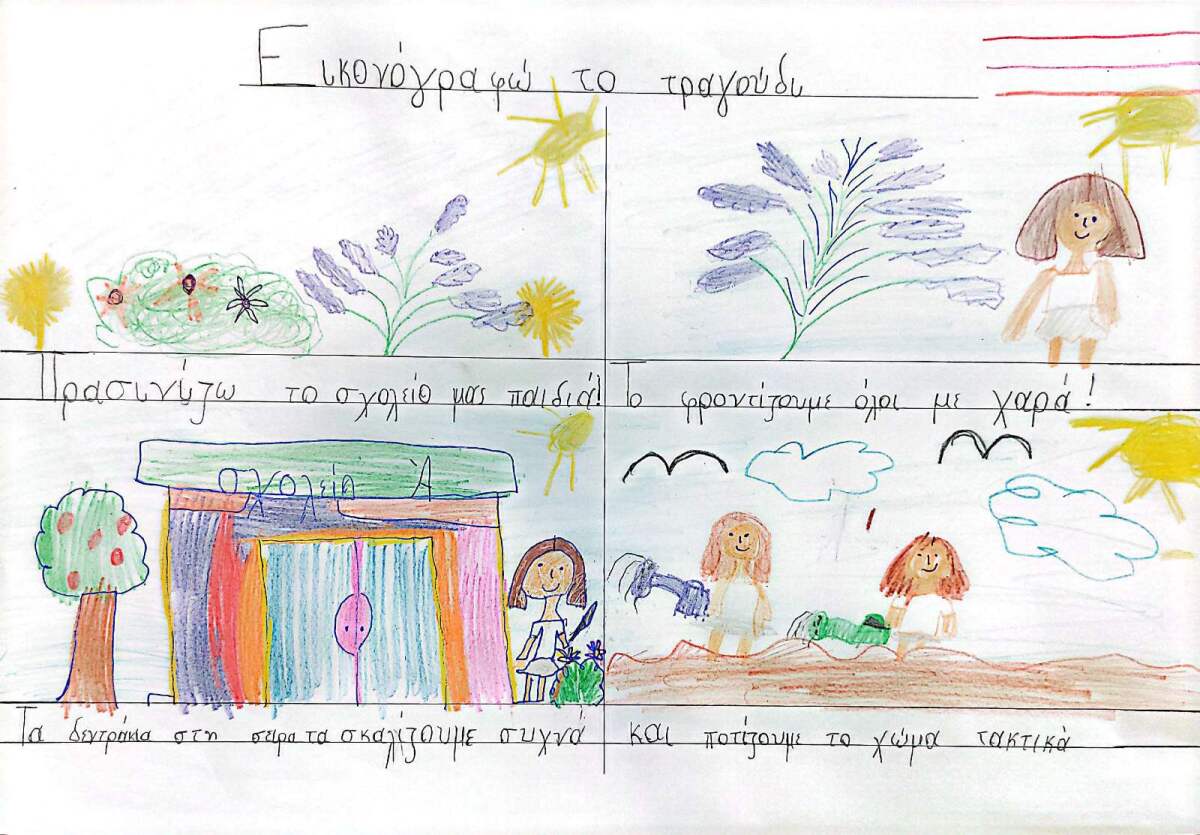 Εικονόγραφώ το τραγούδι
Πρασινίζω το σχολείο μας παιδιά!
Το φροντίζουμε όλοι με χαρά!
σχολείη Ά
Τα δεντράκια στη σειρα τα σκαλίζουμε συχνά
και ποτίζουμε το χώμα τακτικά